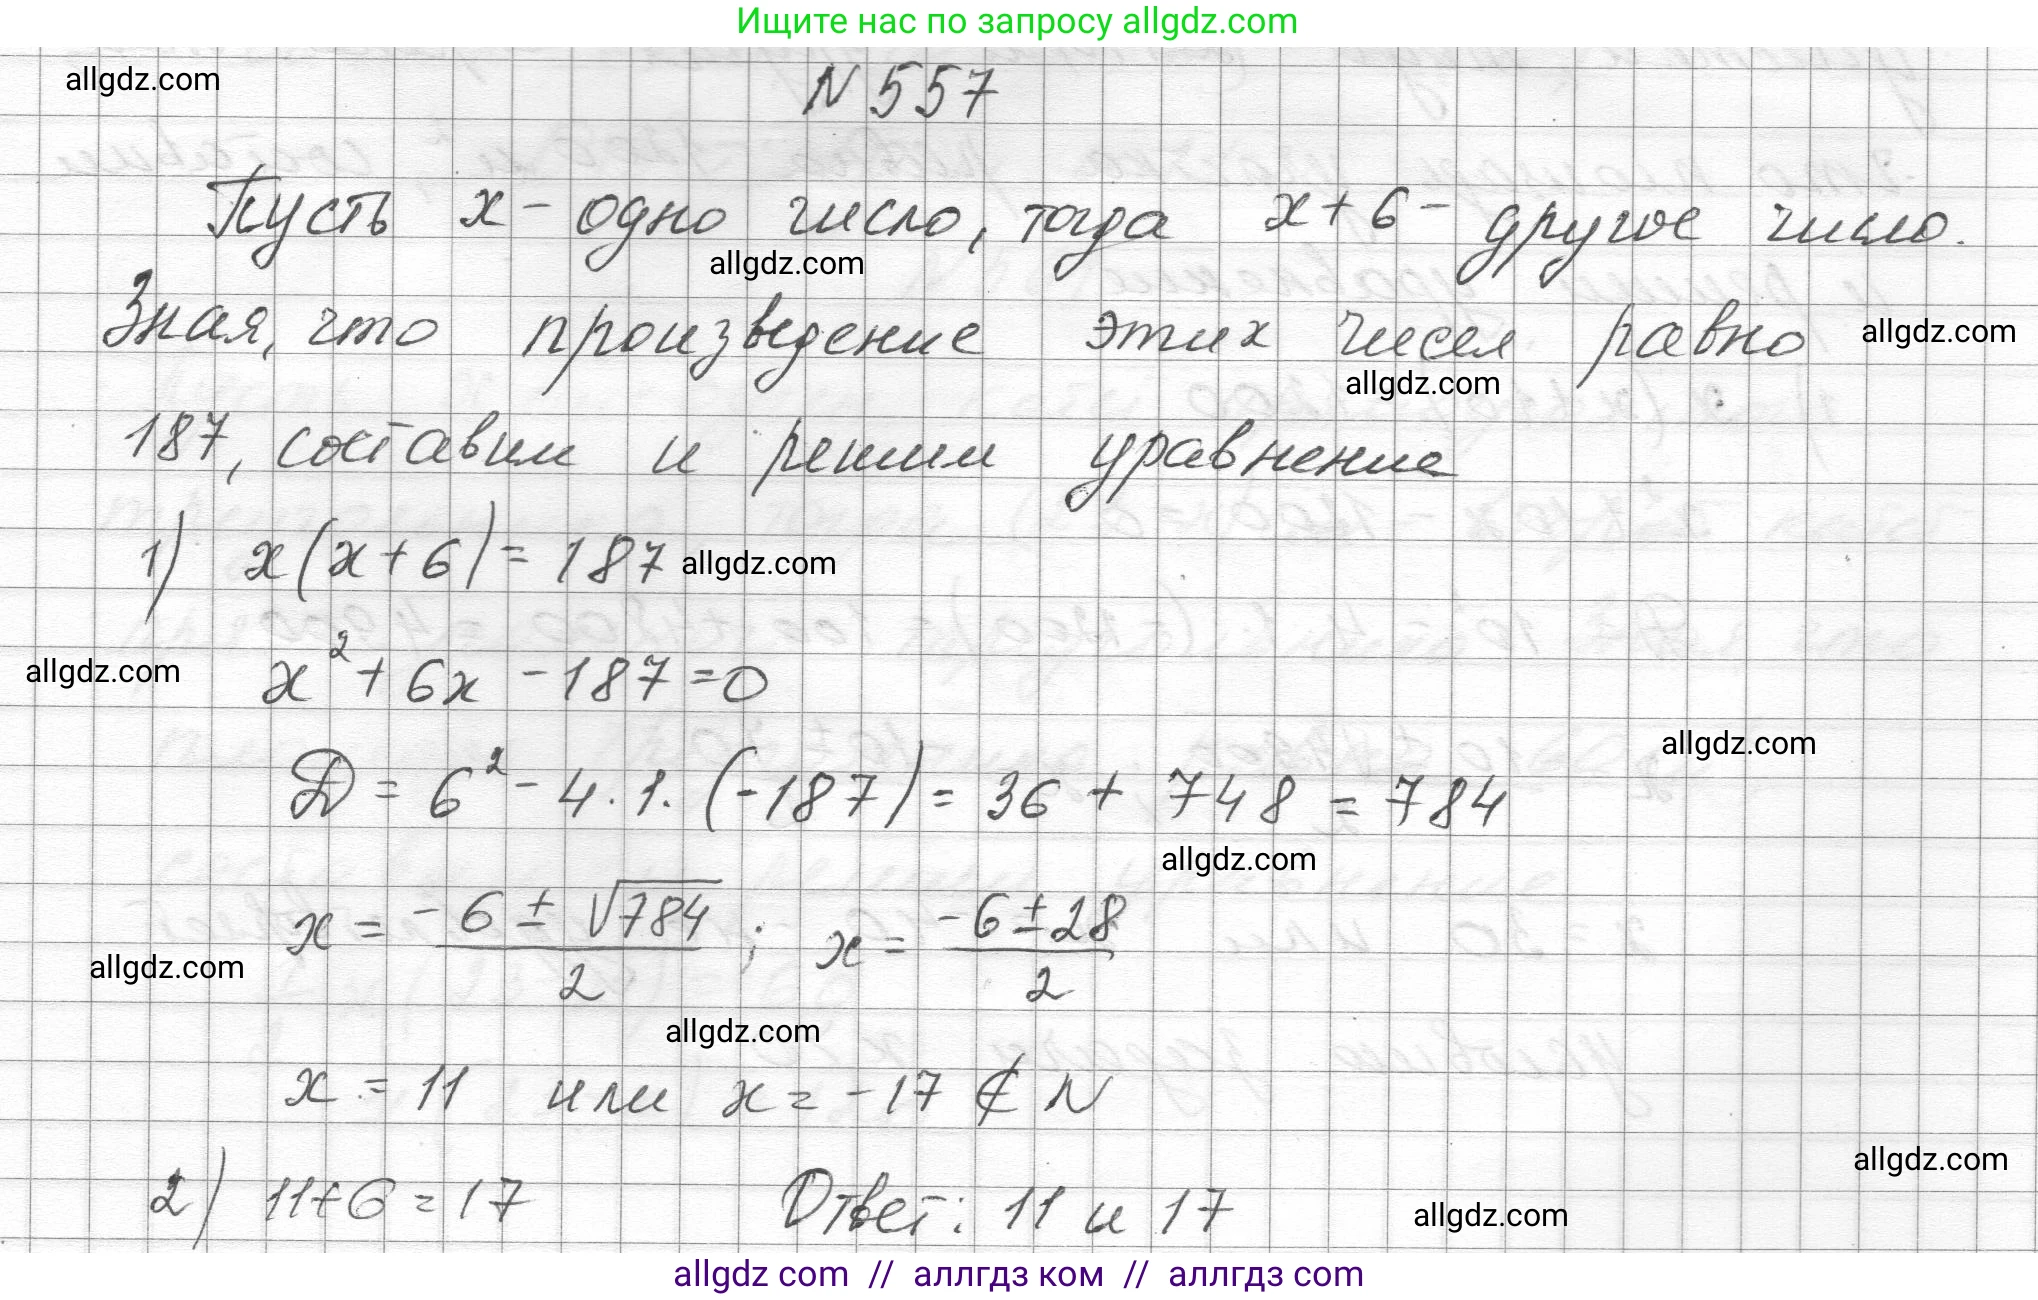 Ищите нас по запросу allgdz.com
allgdz.com
N 557
Пусть x - одно число, тогда x + 6 - другое число.
allgdz.com
Зная, что произведение этих чисел равно
allgdz.com
allgdz.com
187, составим и решим уравнение
1) x(x + 6) = 187
allgdz.com
allgdz.com
x² + 6x - 187 = 0
allgdz.com
D = 6² - 4 · 1 · (-187) = 36 + 748 = 784
allgdz.com
x = (-6 ± √784)/2 ; x = (-6 ± 28)/2
allgdz.com
allgdz.com
x = 11 или x = -17 ∉ N
allgdz.com
2) 11 + 6 = 17 Ответ: 11 и 17
allgdz.com
allgdz com // аллгдз ком // аллгдз com